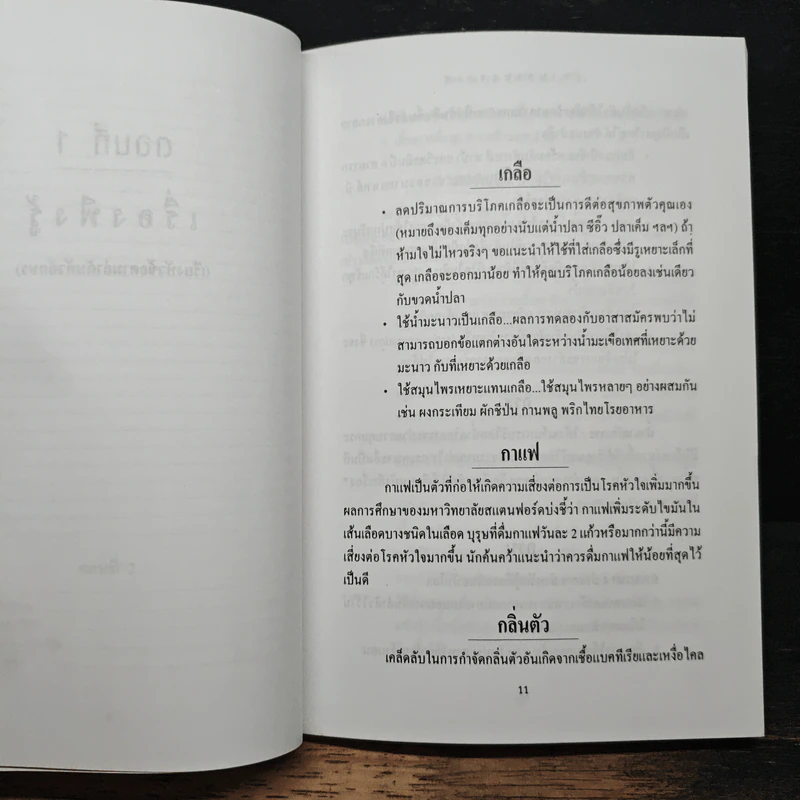 เกลือ
• ลดปริมาณการบริโภคเกลือจะเป็นการดีต่อสุขภาพตัวคุณเอง
(หมายถึงของเค็มทุกอย่างนับแต่น้ำปลา ซีอิ๊ว ปลาเค็ม ฯลฯ) ถ้า
ห้ามใจไม่ไหวจริงๆ ขอแนะนำให้ใช้ที่ใส่เกลือซึ่งมีรูเหยาะเล็กที่
สุด เกลือจะออกมาน้อย ทำให้คุณบริโภคเกลือน้อยลงเช่นเดียว
กับขวดน้ำปลา
• ใช้น้ำมะนาวเป็นเกลือ...ผลการทดลองกับอาสาสมัครพบว่าไม่
สามารถบอกข้อแตกต่างอันใดระหว่างน้ำมะเขือเทศที่เหยาะด้วย
มะนาว กับที่เหยาะด้วยเกลือ
• ใช้สมุนไพรเหยาะแทนเกลือ...ใช้สมุนไพรหลายๆ อย่างผสมกัน
เช่น ผงกระเทียม ผักชีป่น กานพลู พริกไทยโรยอาหาร
กาแฟ
กาแฟเป็นตัวที่ก่อให้เกิดความเสี่ยงต่อการเป็นโรคหัวใจเพิ่มมากขึ้น
ผลการศึกษาของมหาวิทยาลัยสแตนฟอร์ดบ่งชี้ว่า กาแฟเพิ่มระดับไขมันใน
เส้นเลือดบางชนิดในเลือด บุรุษที่ดื่มกาแฟวันละ 2 แก้วหรือมากกว่านี้มีความ
เสี่ยงต่อโรคหัวใจมากขึ้น นักค้นคว้าแนะนำว่าควรดื่มกาแฟให้น้อยที่สุดไว้
เป็นดี
กลิ่นตัว
เคล็ดลับในการกำจัดกลิ่นตัวอันเกิดจากเชื้อแบคทีเรียและเหงื่อไคล
11